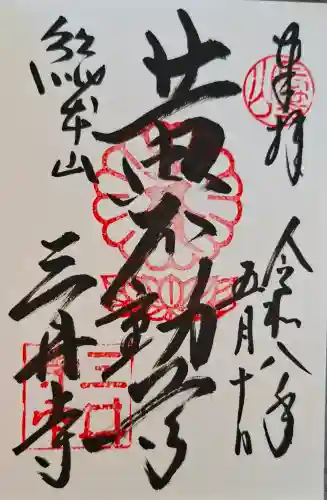 奉拝
令和八年
五月十日
黄不動尊
総本山
三井寺